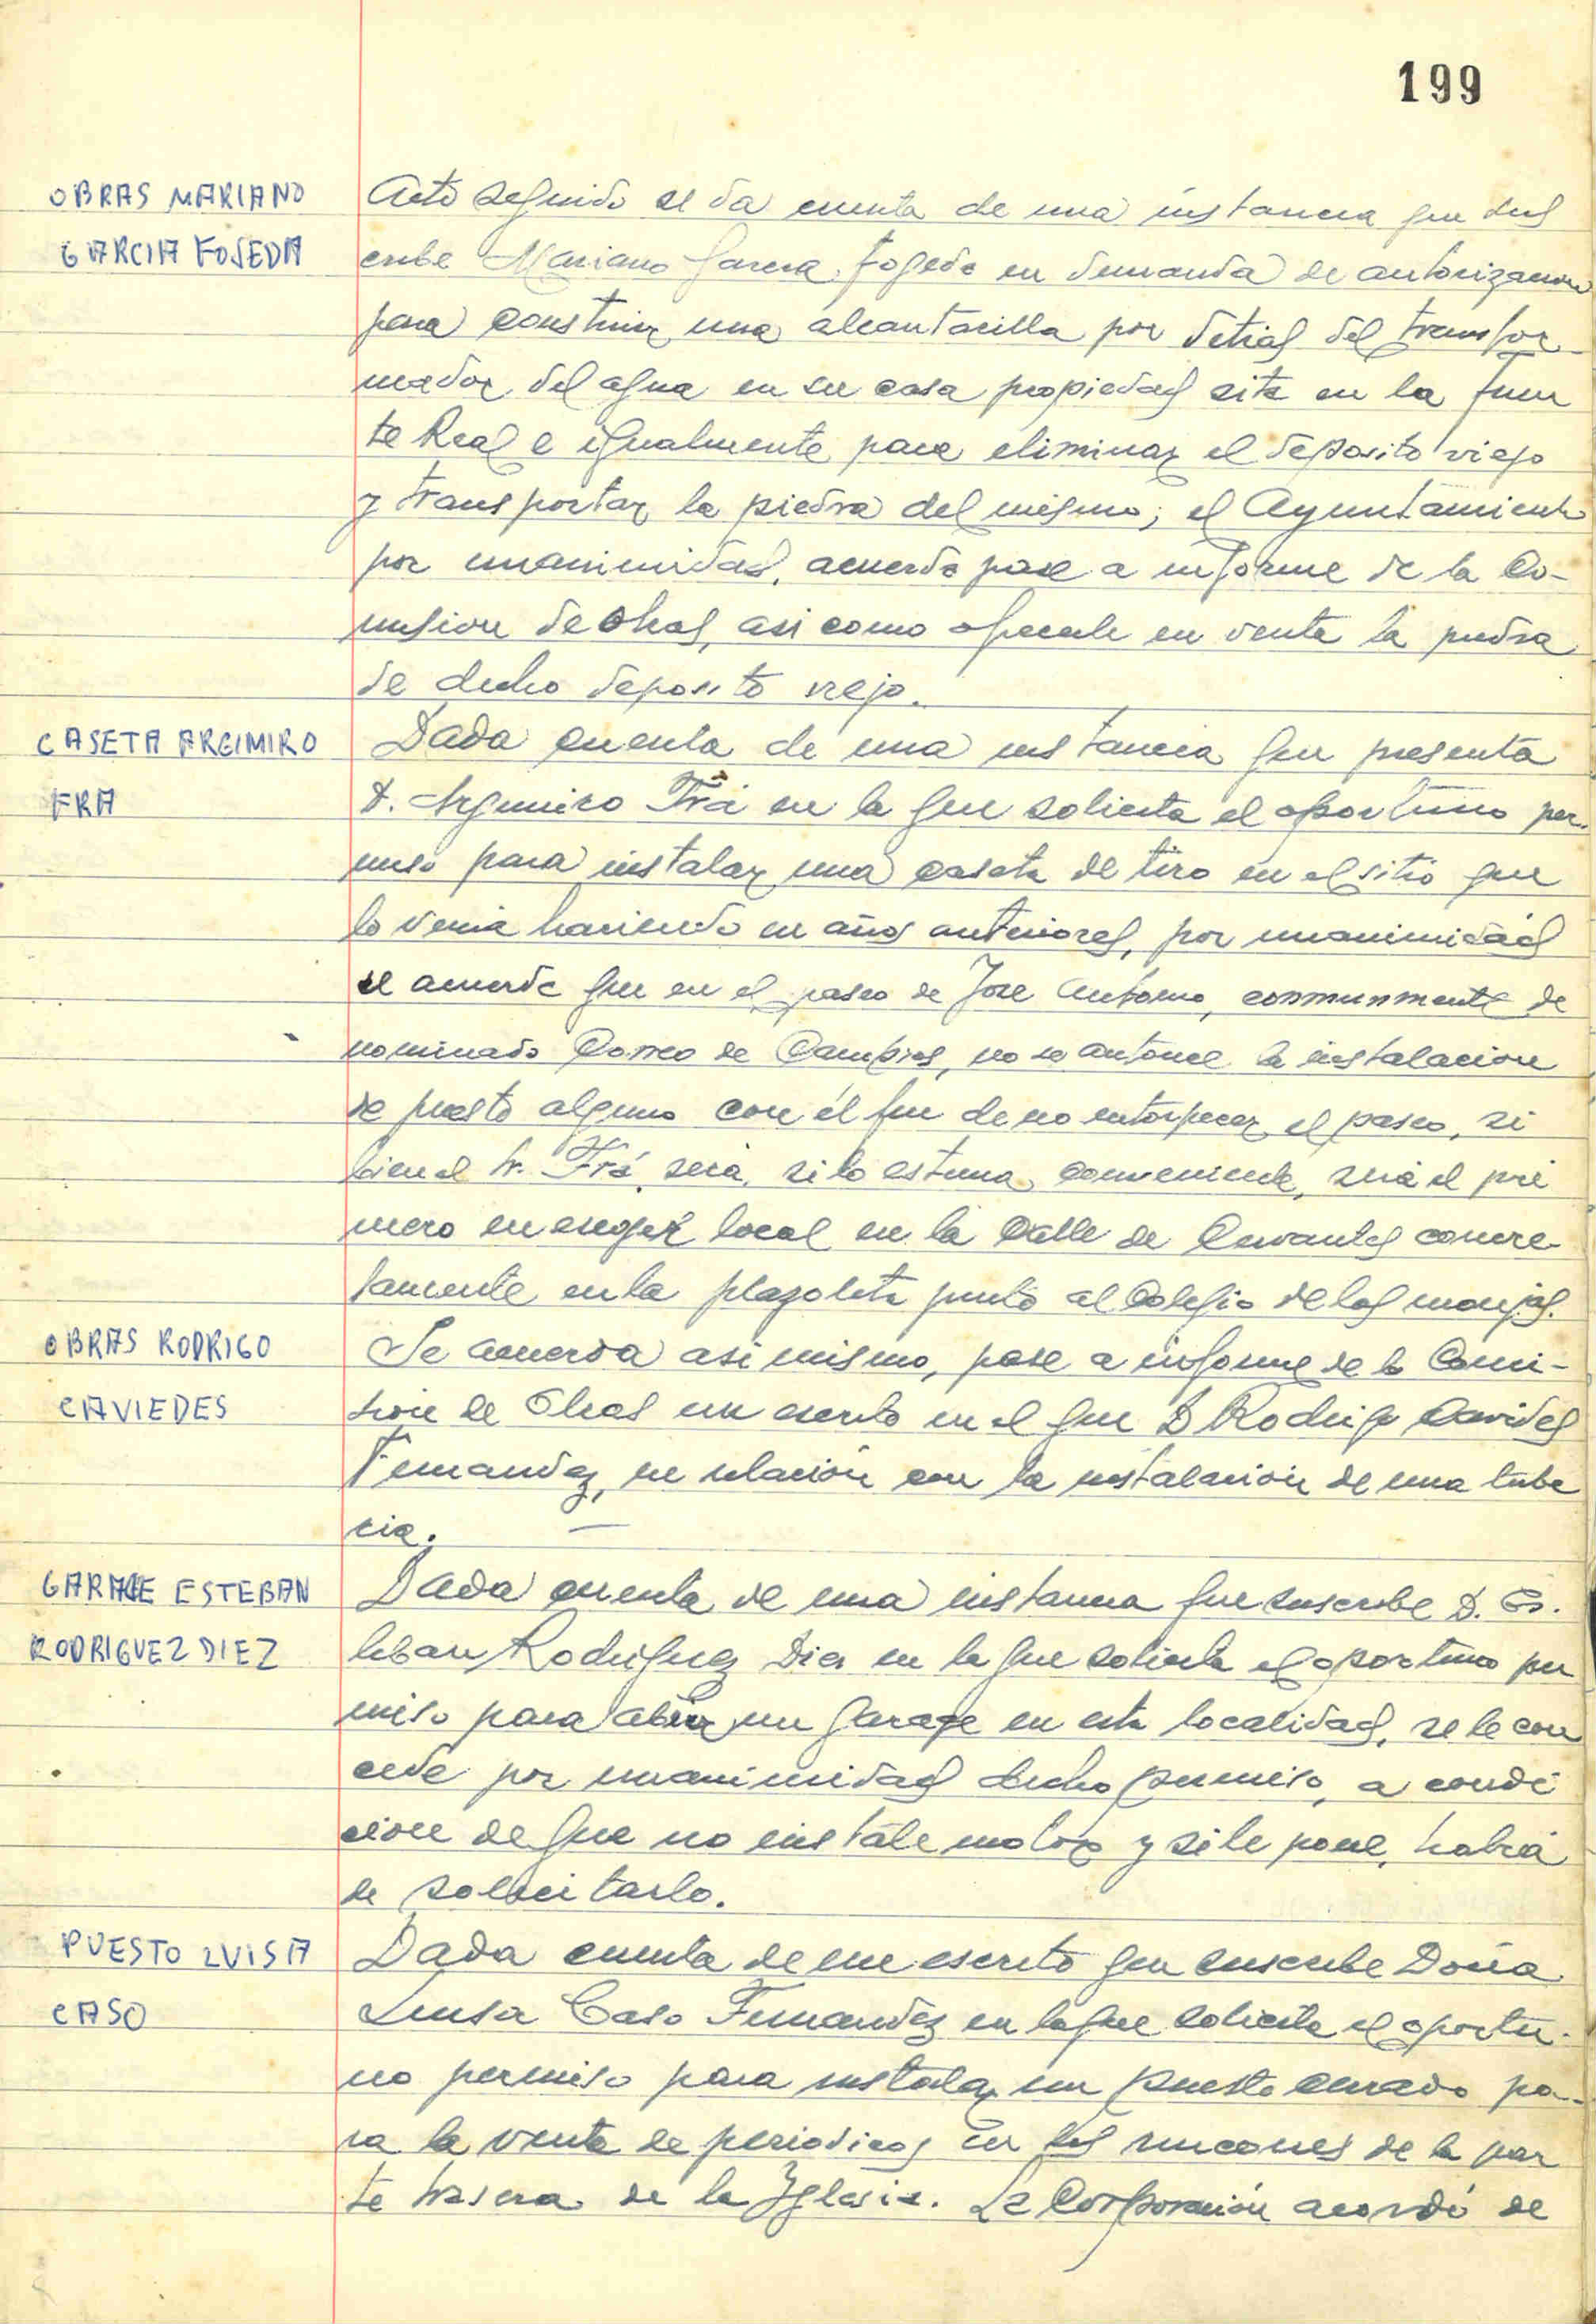 199
OBRAS MARIANO
GARCIA FOJEDA
Acto seguido se da cuenta de una instancia que sus
cribe Mariano Garcia Fogeda en demanda de autorizacion
para construir una alcantarilla por detras del transfor-
mador del agua en su casa propiedad sita en la Fuen
te Real e igualmente para eliminar el deposito viejo
y transportar la piedra del mismo; el Ayuntamiento
por unanimidad, acuerda pase a informe de la Co-
mision de Obras, asi como ofrecerle en venta la piedra
de dicho deposito viejo.
CASETA ARGIMIRO
FRA
Dada cuenta de una instancia que presenta
D. Argimiro Frá en la que solicita el oportuno per-
miso para instalar una caseta de tiro en el sitio que
lo venia haciendo en años anteriores, por unanimidad
se acuerda que en el paseo de Jose Antonio, conmunmente de
nominado Correo de Campios, no se autorice la instalacion
de puesto alguno con el fin de no entorpecer el paseo, si
bien el Sr. Frá, será, si lo estima conveniente, será el pri
mero en escoger local en la Calle de Cervantes concre-
tamente en la plazoleta junto al Colegio de las monjas.
OBRAS RODRIGO
CAVIEDES
Se acuerda asi mismo, pase a informe de la Comi-
sion de Obras un escrito en el que D Rodrigo Cavides
Fernandez, en relación con la instalación de una tube
ria.
GARAGE ESTEBAN
RODRIGUEZ DIEZ
Dada cuenta de una instancia que suscribe D. Es.
teban Rodriguez Diez en la que solicita el oportuno per
miso para abrir un garage en esta localidad, se le con
cede por unanimidad dicho permiso, a condi
cion de que no instale motor y si le pone, habrá
de solicitarlo.
PUESTO LUISA
CASO
Dada cuenta de un escrito que suscribe Doña
Luisa Caso Fernandez en la que solicita el oportu-
no permiso para instalar un puesto cerrado pa-
ra la venta de periodicos en los rincones de la par
te trasera de la Yglesia. La Corporación acordó de